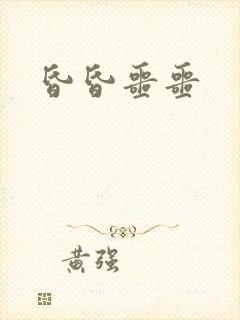 昏昏噩噩
黄强